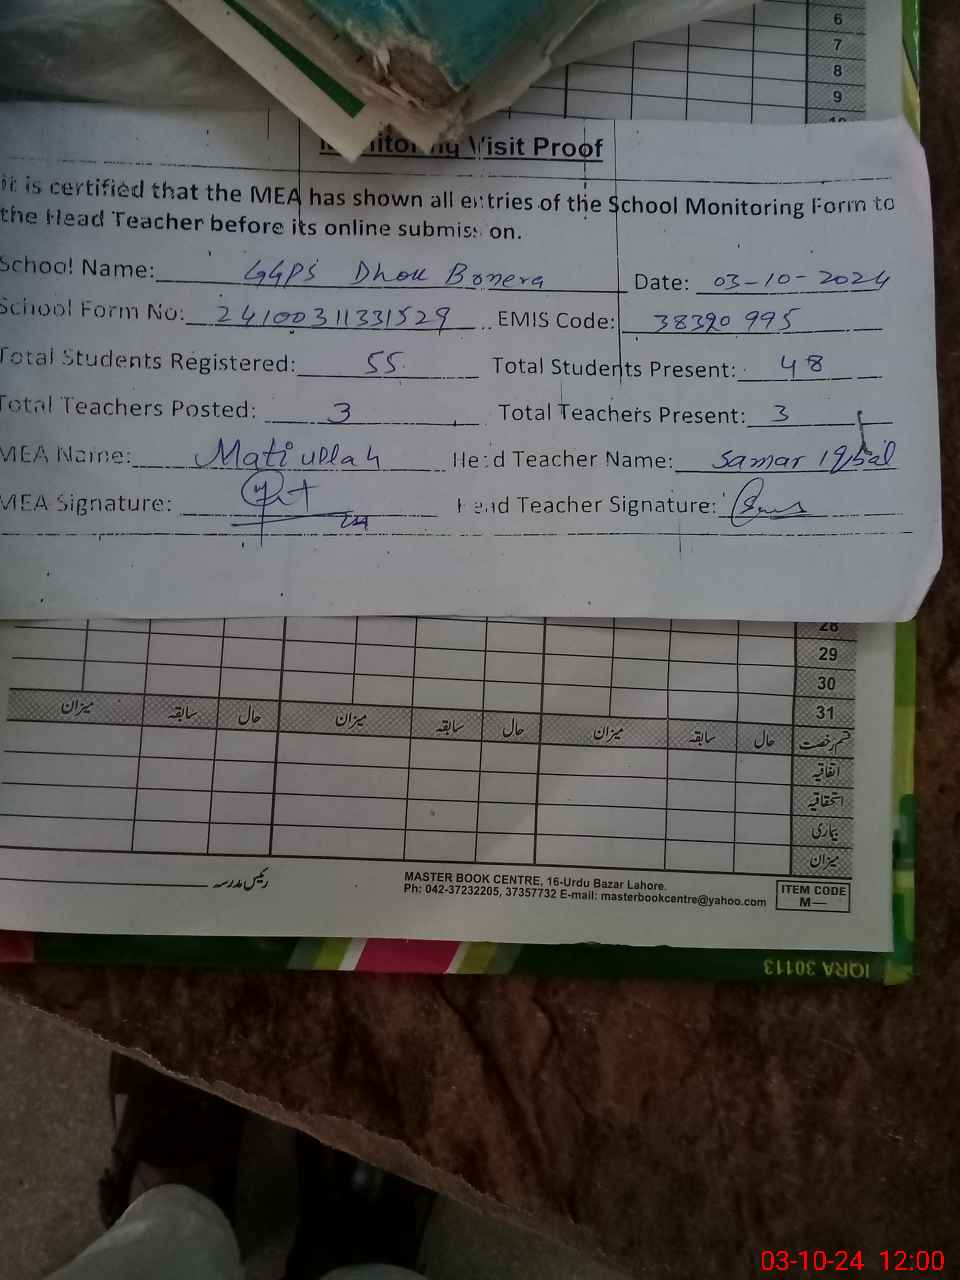 6
7
8
9
10
Monitoring Visit Proof
It is certified that the MEA has shown all entries of the School Monitoring Form to
the Head Teacher before its online submission.
School Name: GGPS Dhok Bonera Date: 03-10-2024
School Form No: 24100311331529 EMIS Code: 38320995
Total Students Registered: 55 Total Students Present: 48
Total Teachers Posted: 3 Total Teachers Present: 3
MEA Name: Matiullah Head Teacher Name: Samar Iqbal
MEA Signature: Head Teacher Signature:
28
29
30
31
قسم رخصت حال سابقہ میزان حال سابقہ میزان حال سابقہ میزان
اتفاقیہ
استحقاقیہ
بیماری
میزان
رئیس مدرسہ
MASTER BOOK CENTRE, 16-Urdu Bazar Lahore.
Ph: 042-37232205, 37357732 E-mail: masterbookcentre@yahoo.com
ITEM CODE
M—
IQRA 30113
03-10-24 12:00